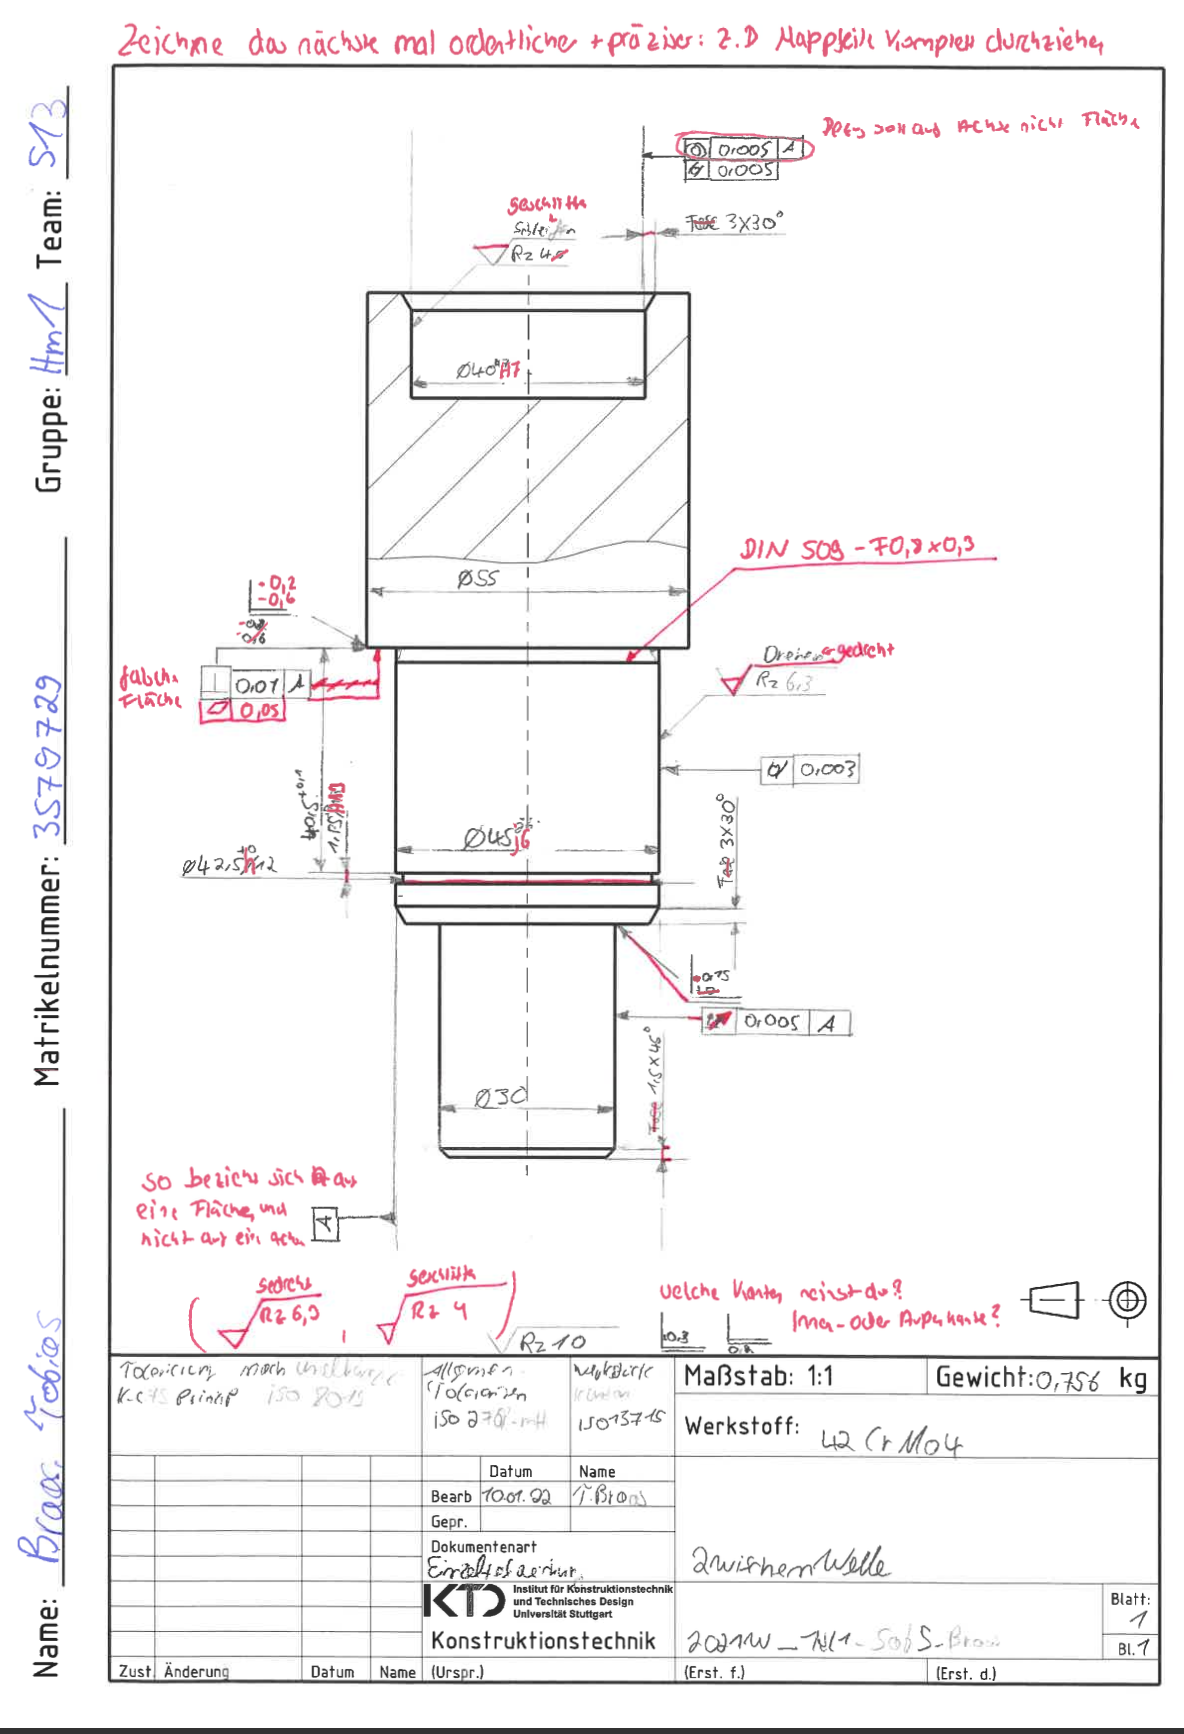 Zeichne das nächste mal ordentlicher + präziser: z.B Maßpfeile komplett durchziehen
Name: Braas, Tobias Matrikelnummer: 3579729 Gruppe: Hm1 Team: S13
soll auf Achse nicht Fläche
0.005 A
0.005
geschliffen
Schleifen
Rz 4
Fase 3x30°
Ø40 H7
DIN 509 - F0,8x0,3
Ø55
-0,2
-0,6
falsche
Fläche
0,01 A
0,05
Drehen gedreht
Rz 6,3
0,003
40,5 +0,1
1,85 H13
Ø45 j6
Ø42,5 h12
Fase 3x30°
0,15
0,005 A
Fase 1,5x45°
Ø30
so bezieht sich A auf
eine Fläche, und
nicht auf ein Achse
A
( gedreht Rz 6,3 , geschliffen Rz 4 )
Rz 10
welche Kanten meinst du?
Innen- oder Außenkante?
0.3
Tolerierung nach
ISO 8015
Allgemein-
Toleranzen
ISO 2768-mH
Werkstück
kanten
ISO 13715
Maßstab: 1:1
Gewicht: 0,756 kg
Werkstoff: 42CrMo4
Datum Name
Bearb 10.01.22 T.Braas
Gepr.
Dokumentenart
KTD Institut für Konstruktionstechnik
und Technisches Design
Universität Stuttgart
Konstruktionstechnik
Zwischenwelle
Blatt:
1
Bl. 1
Zust. Änderung Datum Name (Urspr.) (Erst. f.) (Erst. d.)